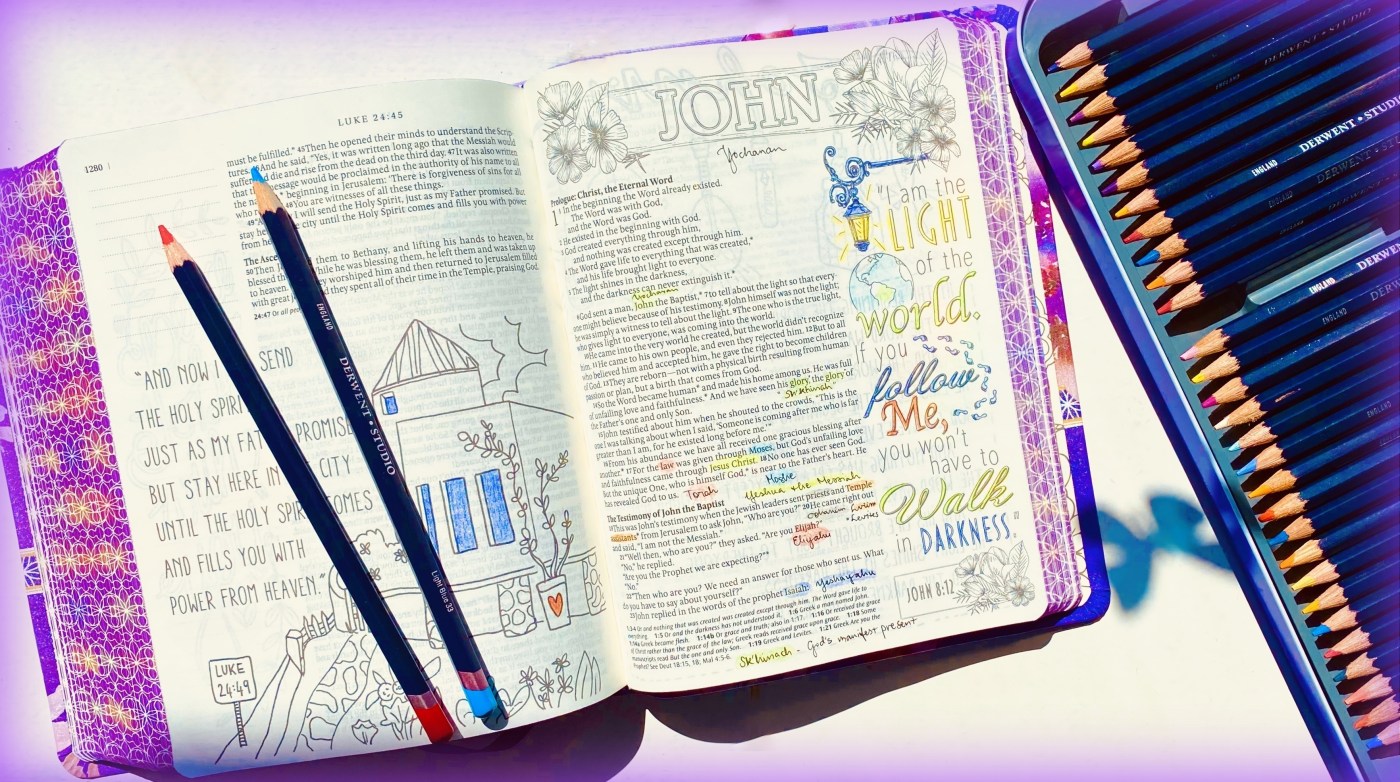 LUKE 24:45
1280
must be fulfilled." 45Then he opened their minds to understand the Scrip-
tures. And he said, "Yes, it was written long ago that the Messiah would
suffer and die and rise from the dead on the third day. 47It was also written
that message would be proclaimed in the authority of his name to all
the n beginning in Jerusalem: 'There is forgiveness of sins for all
who r 48You are witnesses of all these things.
49"A I will send the Holy Spirit, just as my Father promised. But
stay he e city until the Holy Spirit comes and fills you with power
from he
The Asce
50Then J them to Bethany, and lifting his hands to heaven, he
blessed th While he was blessing them, he left them and was taken up
to heaven. y worshiped him and then returned to Jerusalem filled
with great j d they spent all of their time in the Temple, praising God.
24:47 Or all peo
"AND NOW I SEND
THE HOLY SPIRI
JUST AS MY FAT PROMISE
BUT STAY HERE IN CITY
UNTIL THE HOLY SPIR COMES
AND FILLS YOU WITH
POWER FROM HEAVEN."
LUKE
24:49
ENGLAND
DERWENT • STUDIO
Light Blue 33
JOHN
Yochanan
Prologue: Christ, the Eternal Word
1 1In the beginning the Word already existed.
The Word was with God,
and the Word was God.
2He existed in the beginning with God.
3God created everything through him,
and nothing was created except through him.
4The Word gave life to everything that was created,*
and his life brought light to everyone.
5The light shines in the darkness,
and the darkness can never extinguish it.*
Yochanan
6God sent a man, John the Baptist,* 7to tell about the light so that every-
one might believe because of his testimony. 8John himself was not the light;
he was simply a witness to tell about the light. 9The one who is the true light,
who gives light to everyone, was coming into the world.
10He came into the very world he created, but the world didn't recognize
him. 11He came to his own people, and even they rejected him. 12But to all
who believed him and accepted him, he gave the right to become children
of God. 13They are reborn—not with a physical birth resulting from human
passion or plan, but a birth that comes from God.
14So the Word became human* and made his home among us. He was full
of unfailing love and faithfulness.* And we have seen his glory, the glory of
the Father's one and only Son.
"Sh'khinah"
15John testified about him when he shouted to the crowds, "This is the
one I was talking about when I said, 'Someone is coming after me who is far
greater than I am, for he existed long before me.'"
16From his abundance we have all received one gracious blessing after
another.* 17For the law was given through Moses, but God's unfailing love
and faithfulness came through Jesus Christ. 18No one has ever seen God.
But the unique One, who is himself God,* is near to the Father's heart. He
has revealed God to us.
Torah
Moshe
Yeshua the Messiah
The Testimony of John the Baptist
19This was John's testimony when the Jewish leaders sent priests and Temple
assistants* from Jerusalem to ask John, "Who are you?" 20He came right out
and said, "I am not the Messiah."
21"Well then, who are you?" they asked. "Are you Elijah?"
Eliyahu
"No," he replied.
"Are you the Prophet we are expecting?"*
"No."
22"Then who are you? We need an answer for those who sent us. What
do you have to say about yourself?"
23John replied in the words of the prophet Isaiah: Yeshayahu
1:3-4 Or and nothing that was created was created except through him. The Word gave life to
everything. 1:5 Or and the darkness has not understood it. 1:6 Greek a man named John.
1:14a Greek became flesh. 1:14b Or grace and truth; also in 1:17. 1:16 Or received the grace
of Christ rather than the grace of the law; Greek reads received grace upon grace. 1:18 Some
manuscripts read But the one and only Son. 1:19 Greek and Levites. 1:21 Greek Are you the
Prophet? See Deut 18:15, 18; Mal 4:5-6.
Sh'khinah - God's manifest present
"I am the
LIGHT
of the
world.
if you
follow
Me,
you won't
have to
Walk
in DARKNESS."
JOHN 8:12
DERWENT • STUDIO
ENGLAND
DERWENT • STUDIO
ENGLAND
ENGLAND